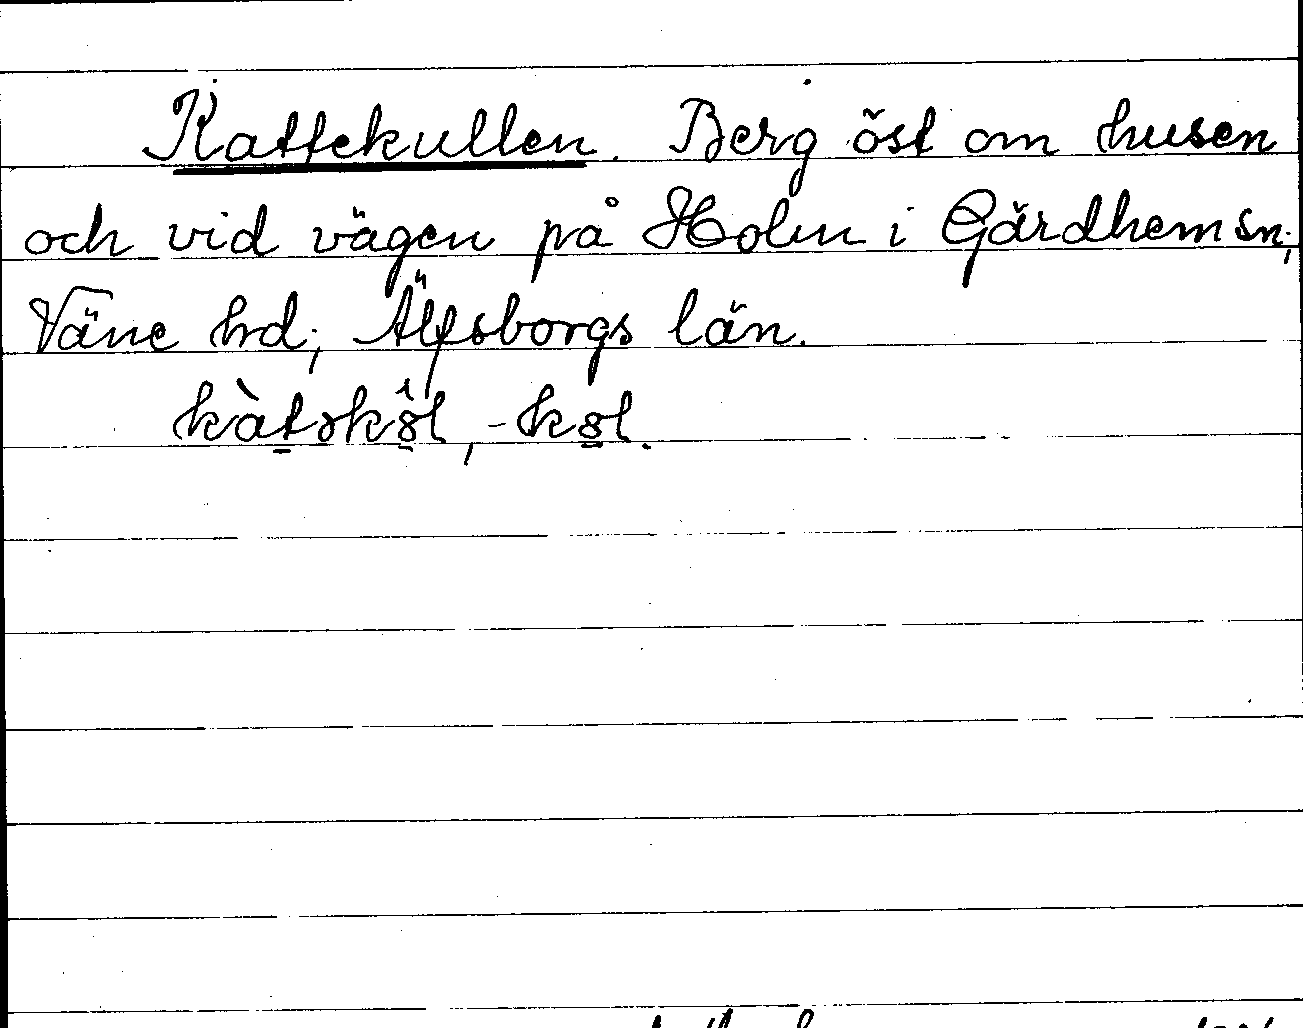 Kattekullen. Berg öst om husen
och vid vägen på Holm i Gärdhem sn,
Väne hd, Älfsborgs län.